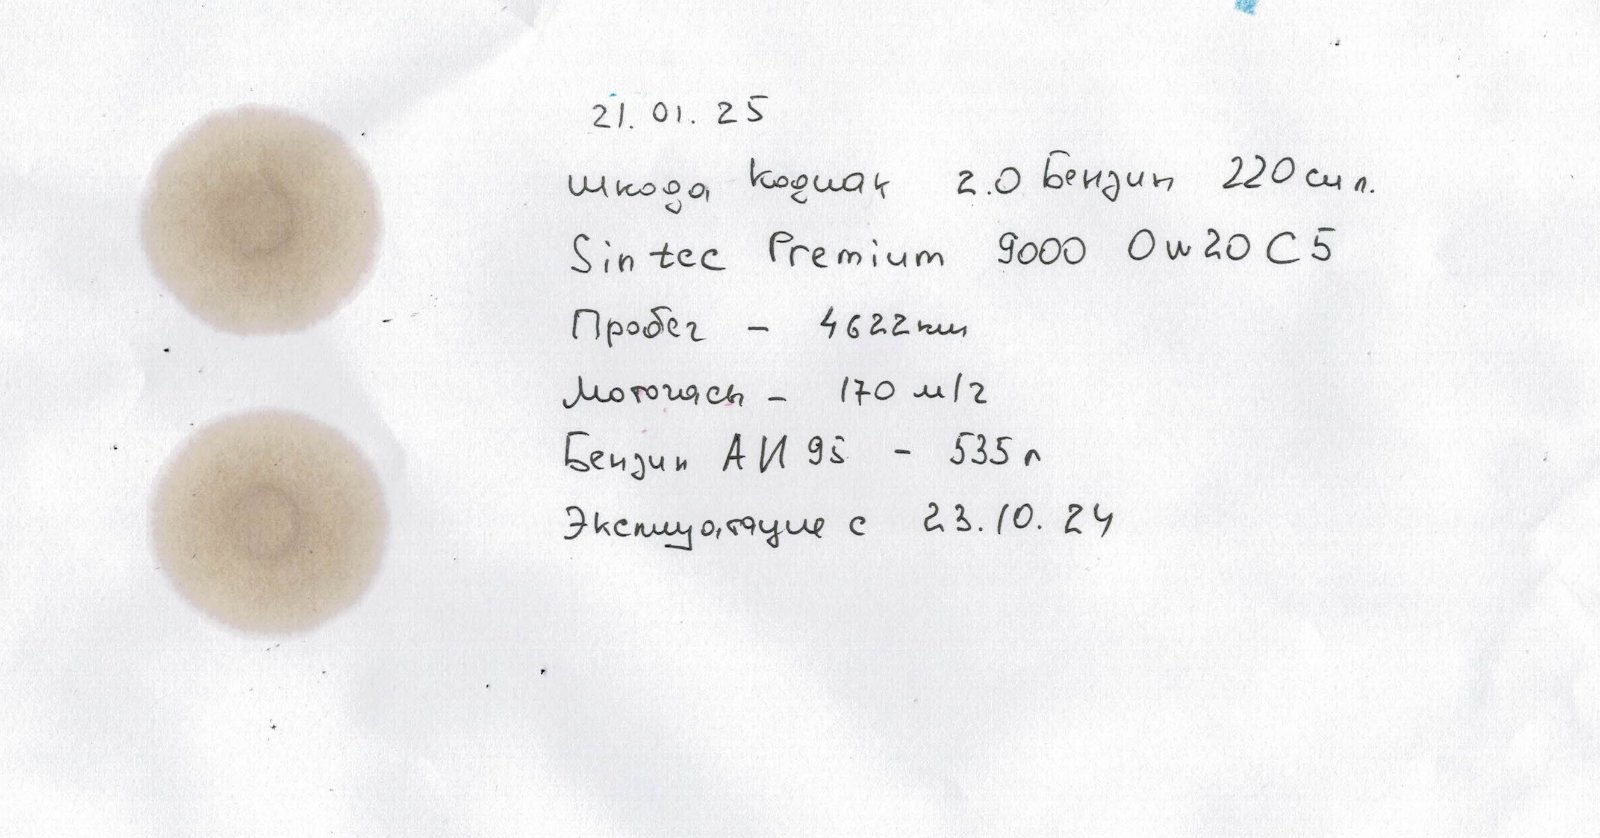 21.01.25
Шкода Кодиак 2.0 Бензин 220 сил.
Sintec Premium 9000 0w20 C5
Пробег - 4622км
Моточасы - 170 м/г
Бензин АИ 95 - 535 л
Эксплуатацие с 23.10.24